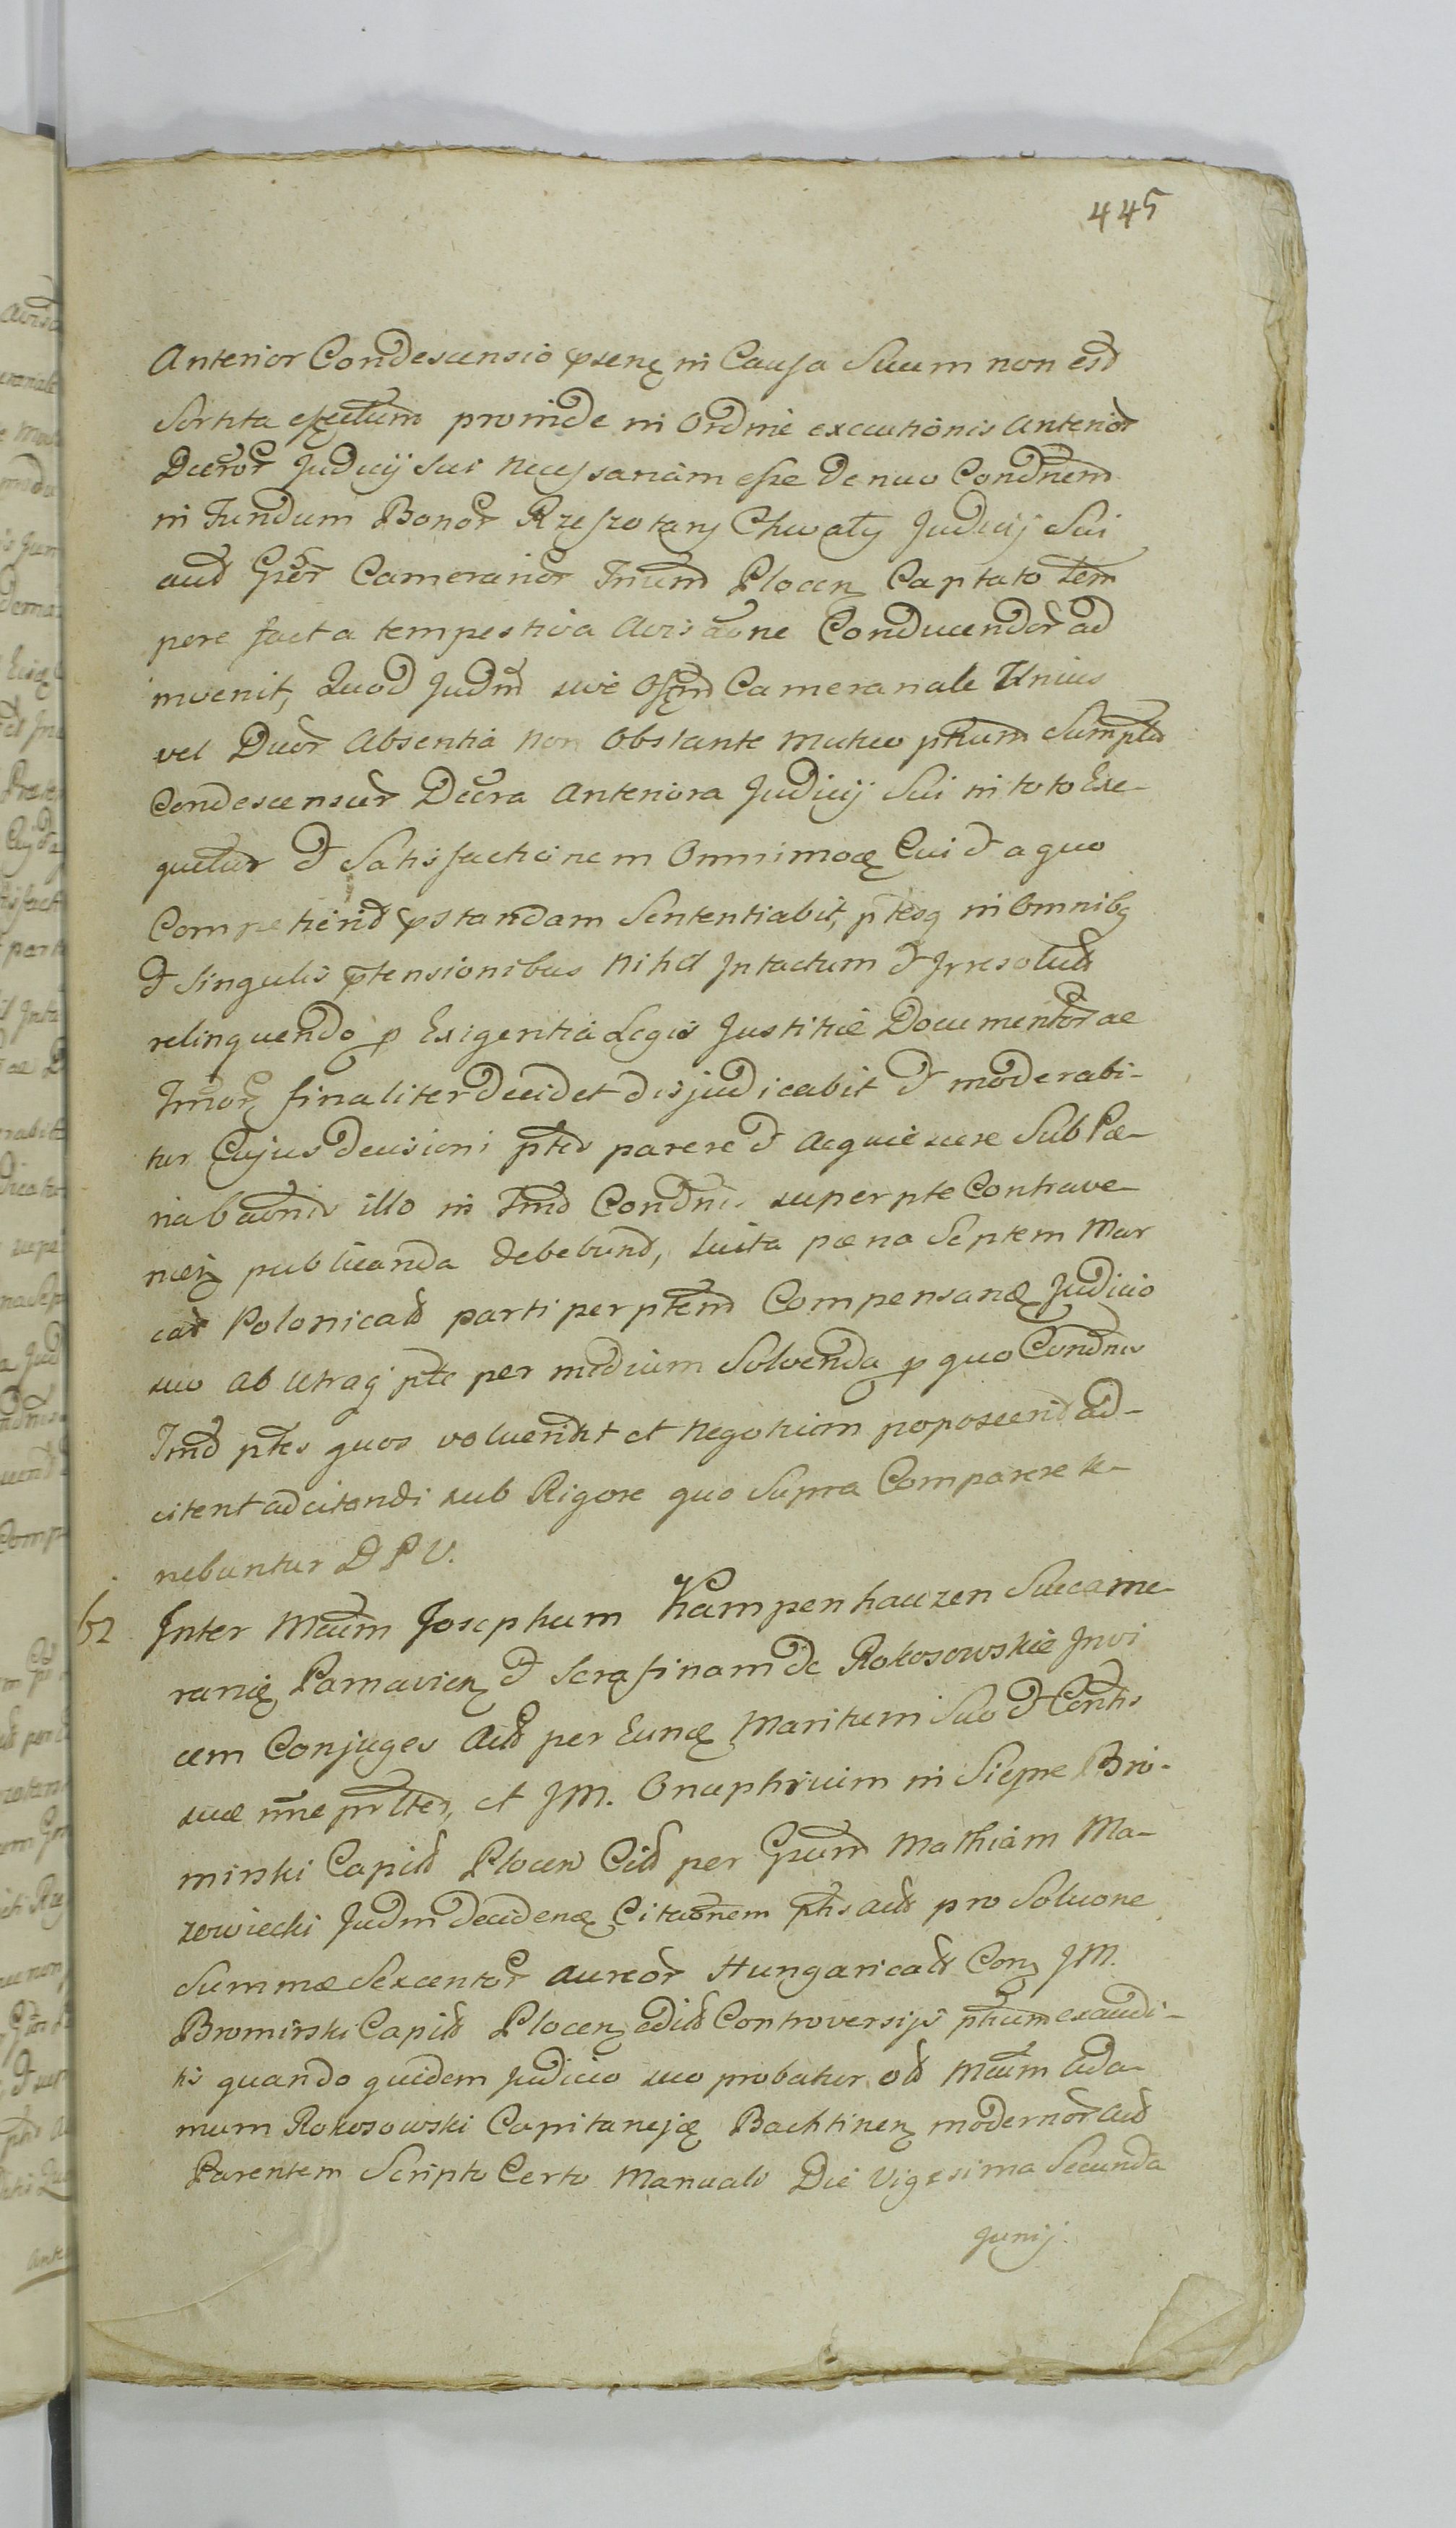 445
Anterior Condescensio prsenq in Causa Suum non est
Sortita effectum proinde in Ordine executionis Anterior
Decror Judicij Sui Necessariam esse De nuo Condnem
in Fundum Bonor Rzeszotary Chwały Judicij Sui
aut Gser Cameranior Trium Plocen Captato tem
pore facta tempestiva Avisaone Conducendor ad
invenit, Quod Judm sive Offm Camerariale Unius
vel Duor Absentia Non Obstante Mutuo ptium Sumptu
Condescensur Decra Anteriora Judicij Sui in toto Exe-
quetur et Satisfactionem Omnimodę Cui et a quo
Competierit prstandam Sententiabit, ptesq in Omnibq
et Singulis prtensionibus Nihil Intactum et Irresolutt
relinquendo p Exigentia Legis Justitiæ Documentor ac
Jmor finaliter Decidet disjudicabit et moderabi-
tur Cujus Decisioni ptes parere et Acquiescere Sub Pæ-
na baonis illo in Tmo Condnis super pte Contrave
nien publicanda debebunt, luita pæna Septem Mar
car Polonicalt parti per ptem Compensandę Judicio
suo ab utraq pte per medium Solvenda p quo Condnis
Tmo ptes quos voluerint et Negotium poposcerit ad-
citent adcitandi sub Rigore quo Supra Comparere te-
nebuntur D P V.
62 Inter Mcum Josephum Kampenhauzen Succame-
rarię Parnavien et Serafinam de Rokosowskie Invi
cem Conjuges Actt per Eundę Maritum Suo et Contis
suæ nne prltes, et JM. Onuphrium in Sieprc Bro-
mirski Capitt Plocen Citt per Gsum Mathiam Ma-
zowiecki Judm Decidendę Citaonem ptis actt pro Soluone
Summæ Sexcentor Aureor Hungaricalt Con JM.
Bromirski Capitt Plocen editt Controversijs ptium exaudi-
tis quando quidem Judicio suo probatur ott Mcum Ada-
mum Rokosowski Capitanejdę Bachtinen modernor actt
Parentem Scripto Certo Manuali Die Vigesima Secunda
Junij.